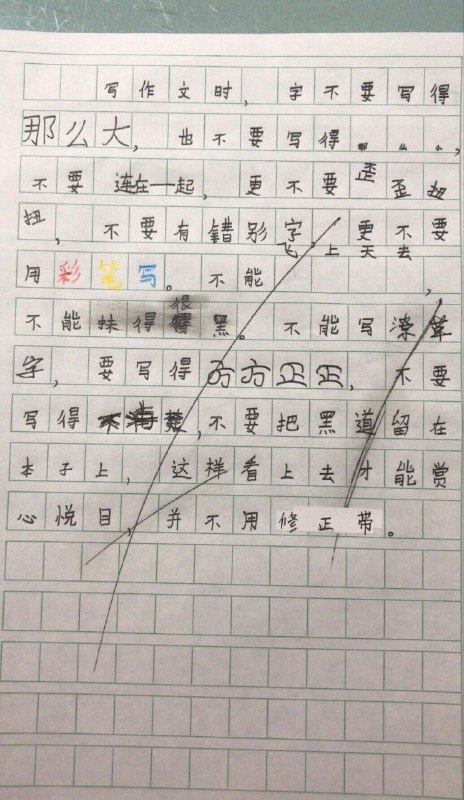 写作文时，字不要写得
那么大，也不要写得，
不要连在一起，更不要歪歪扭
扭，不要有错别字，更不要
用彩笔写。不能飞上天去，
不能抹得很黑。不能写潦草
字，要写得方方正正，不要
写得不清楚，不要把黑道留在
本子上，这样看上去才能赏
心悦目，并不用修正带。